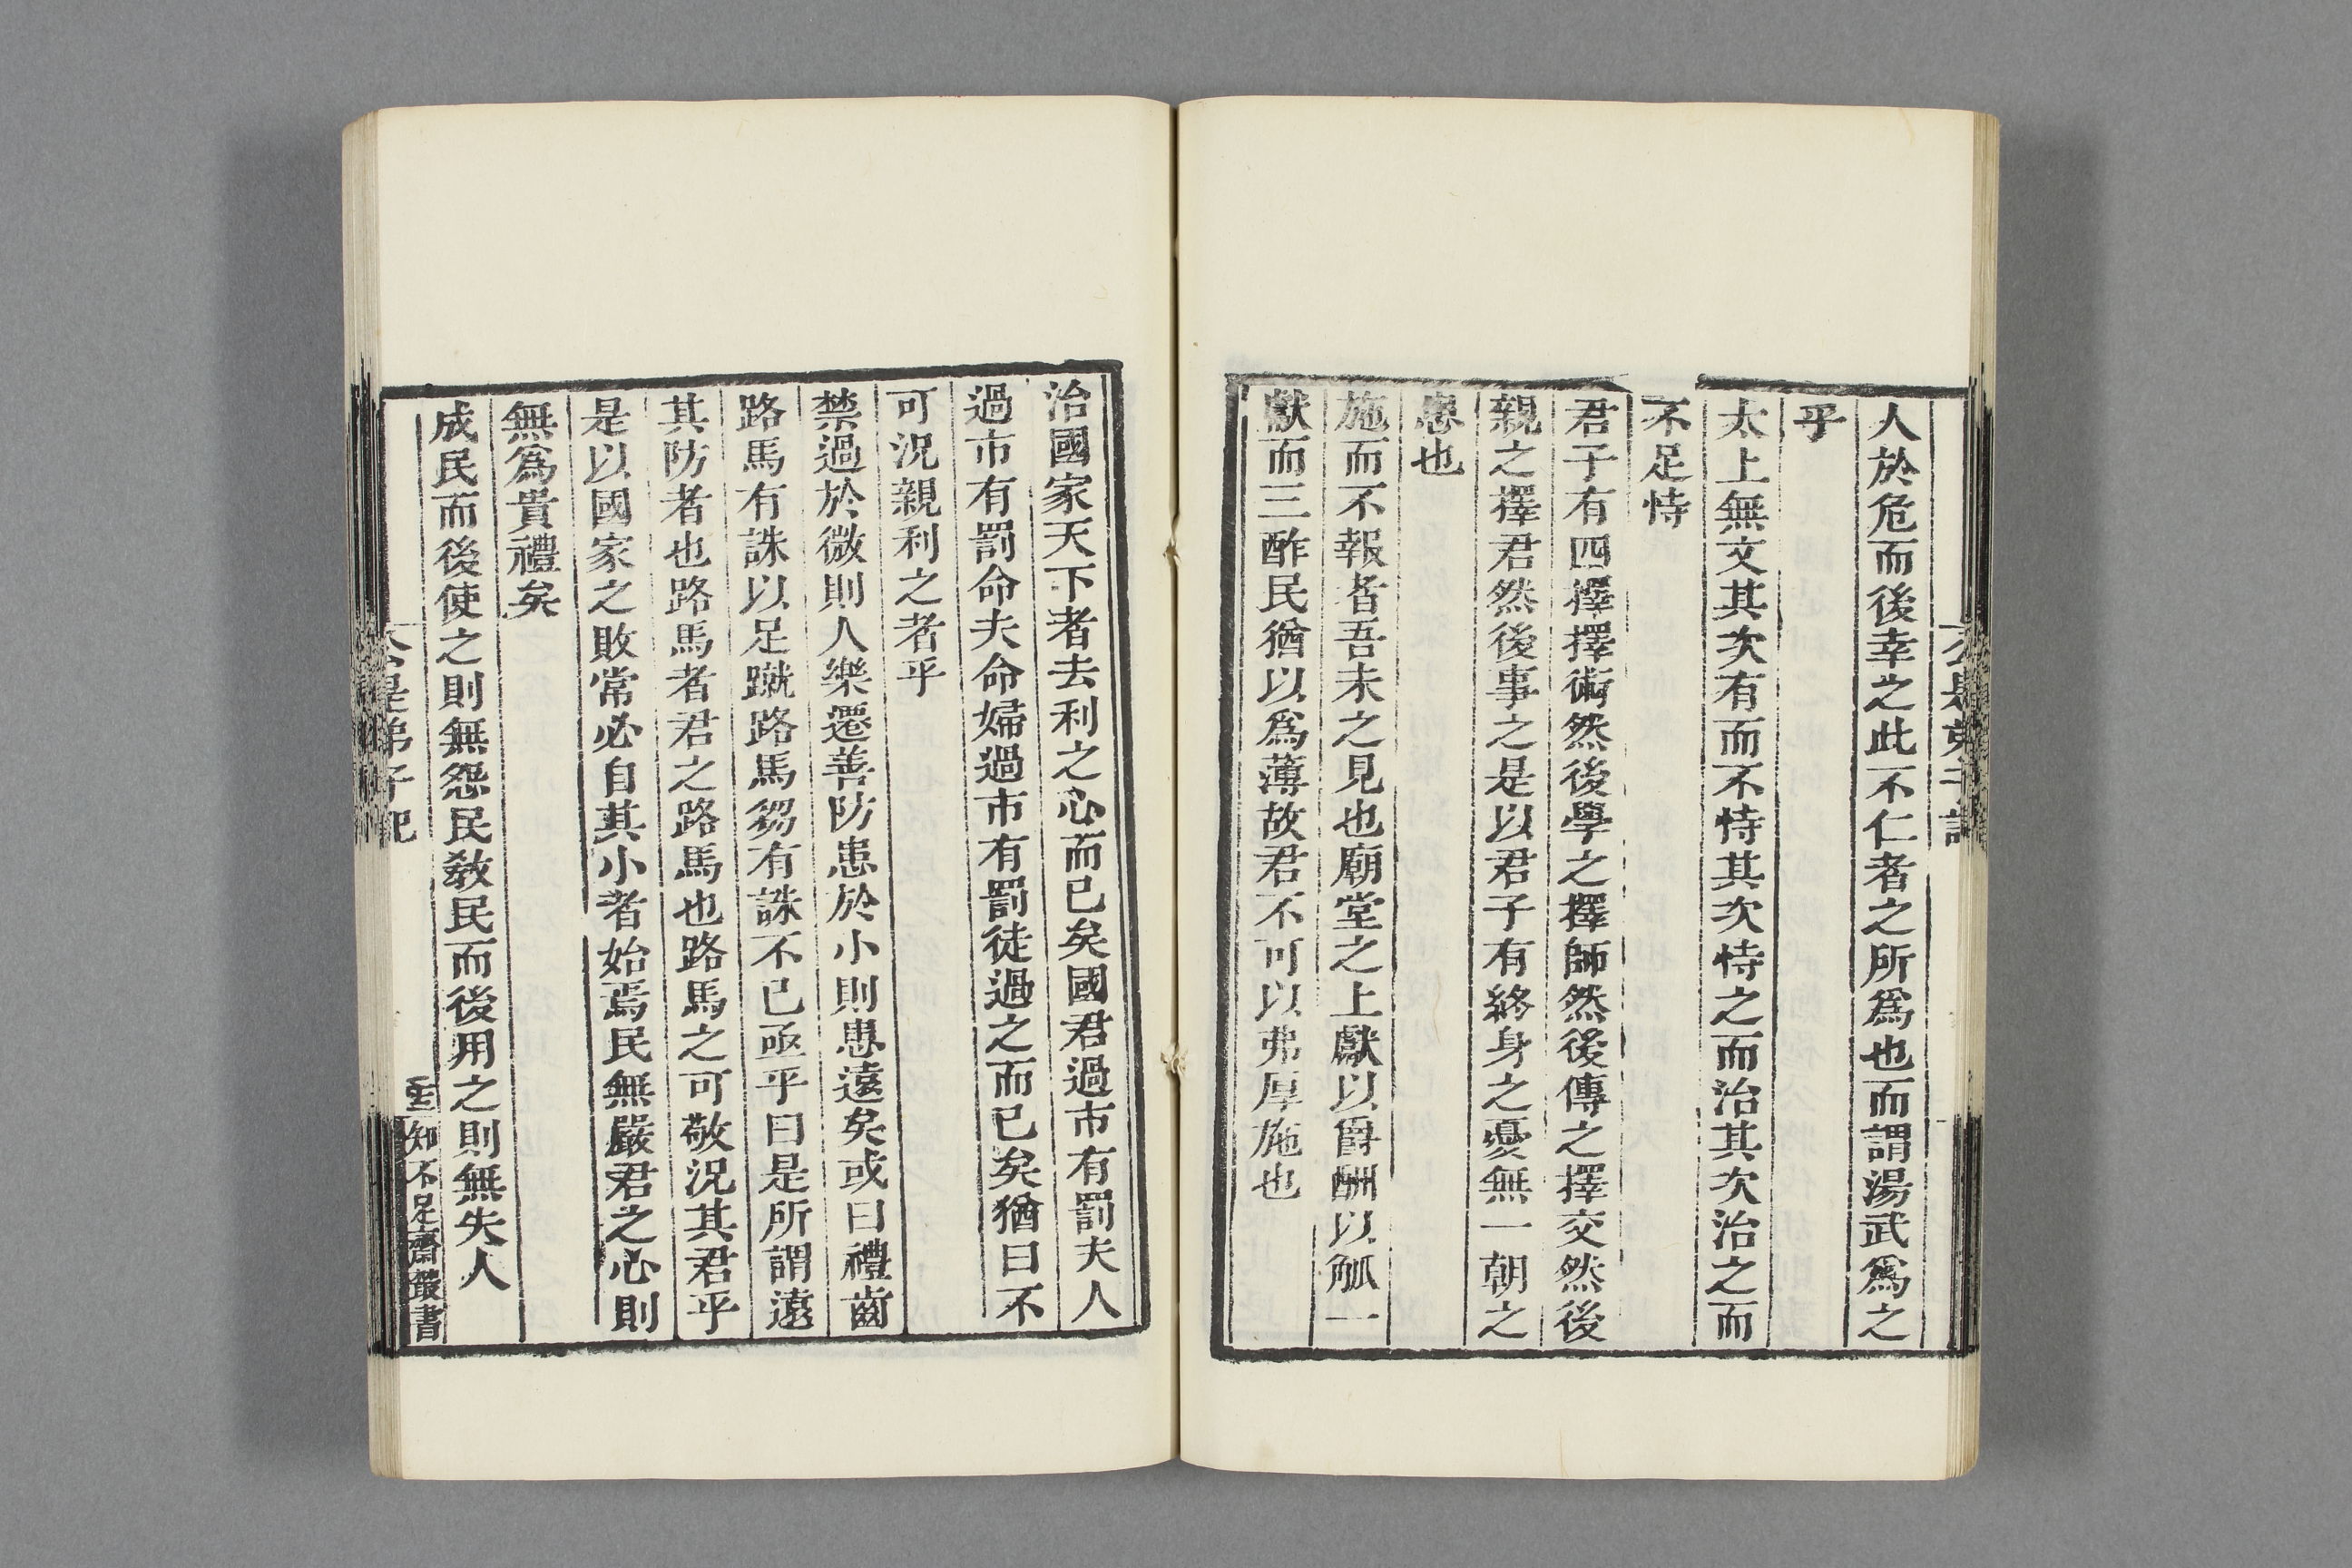 公是弟子記
人於危而後幸之此不仁者之所爲也而謂湯武爲之
乎
太上無文其次有而不恃其次恃之而治其次治之而
不足恃
君子有四擇擇術然後學之擇師然後傳之擇交然後
親之擇君然後事之是以君子有終身之憂無一朝之
患也
施而不報者吾未之見也廟堂之上獻以爵酬以觚一
獻而三酢民猶以爲薄故君不可以弗厚施也
治國家天下者去利之心而已矣國君過市有罰夫人
過市有罰命夫命婦過市有罰徒過之而已矣猶曰不
可況親利之者乎
禁過於微則人樂遷善防患於小則患遠矣或曰禮齒
路馬有誅以足蹴路馬芻有誅不已亟乎曰是所謂遠
其防者也路馬者君之路馬也路馬之可敬況其君乎
是以國家之敗常必自其小者始焉民無嚴君之心則
無爲貴禮矣
成民而後使之則無怨民敎民而後用之則無失人
公是弟子記
知不足齋叢書